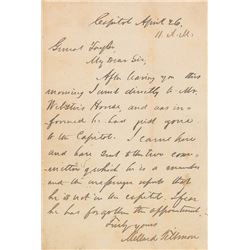 Capitol April 26.
11 A.M.
General Taylor,
My Dear Sir,
After leaving you this
morning I went directly to Mr.
Webster's House, and was in-
formed he had just gone
to the Capitol. I came here
and have sent to the two com-
mittees of which he is a member
and the messenger reports that
he is not in the capitol. I fear
he has forgotten the appointment.
Truly yours
Millard Fillmore